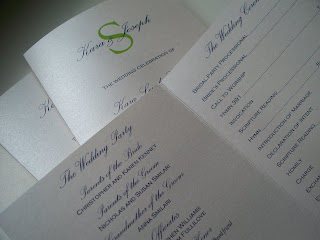 Kara & Joseph
S
THE WEDDING CELEBRATION OF
Kara
The Wedding Party
Parents of the Bride
CHRISTOPHER AND KAREN KENNEY
Parents of the Groom
NICHOLAS AND SUSAN SMILARI
Grandmother of the Groom
ANNA SMILARI
Officiates
WILLIAMS
The Wedding
BRIDAL PARTY PROCESSIONAL
BRIDE'S PROCESSIONAL
CALL TO WORSHIP
HYMN 391
INVOCATION
SCRIPTURE READING
HYMN
INTRODUCTION OF MARRIAGE
DECLARATION OF INTENT
SCRIPTURE READING
HOMILY
CHARGE